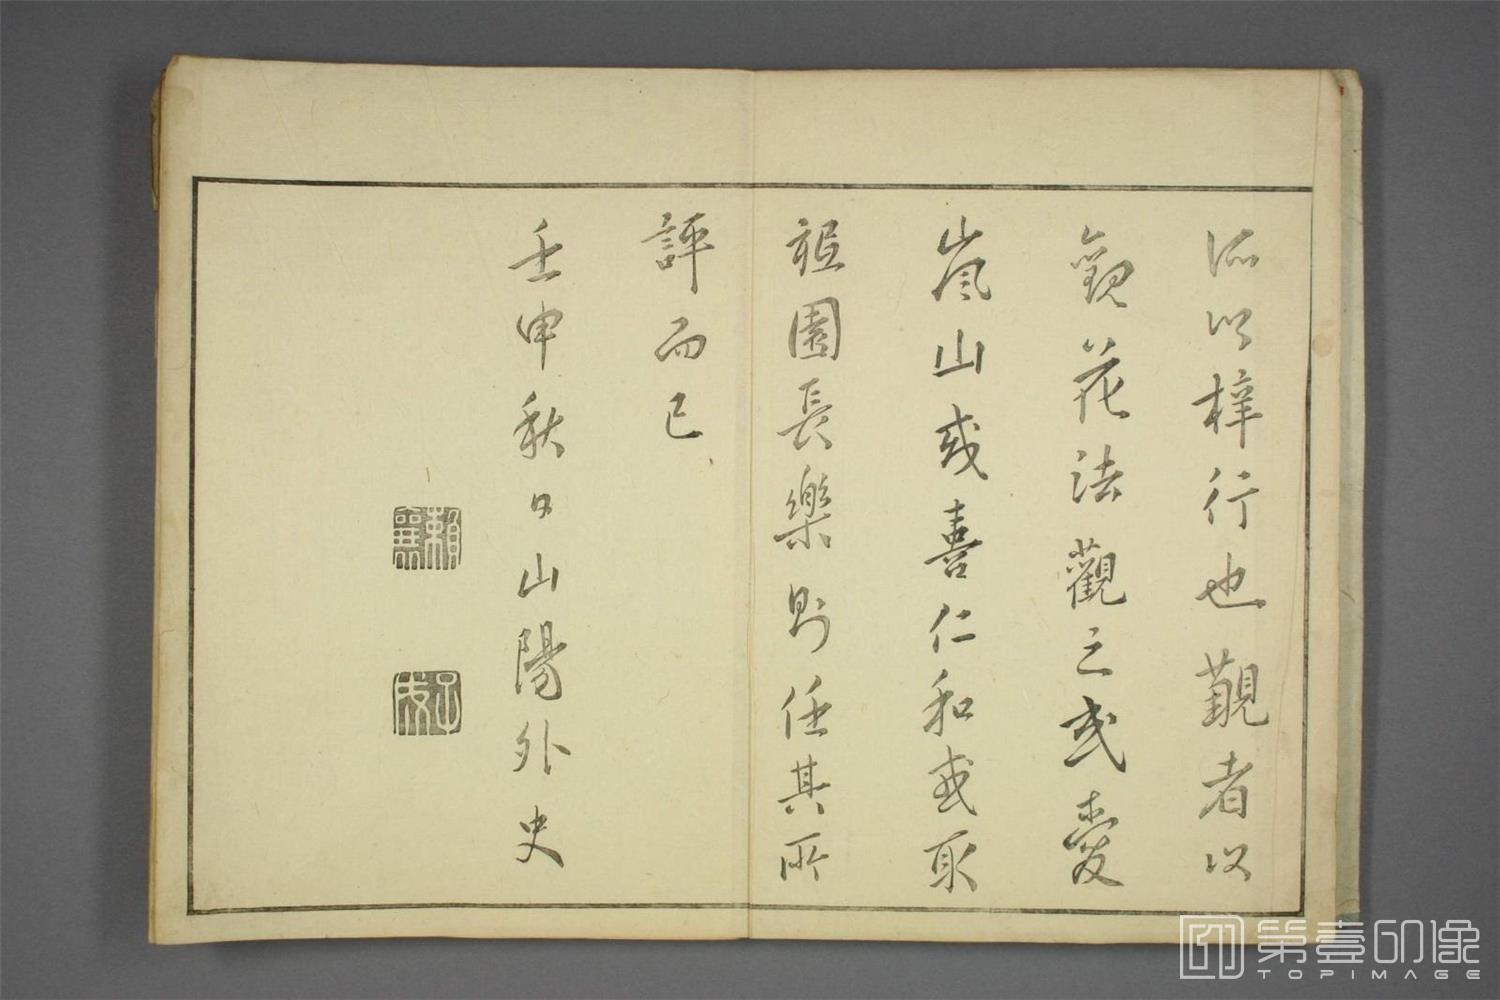 所以梓行也觀者以
觀花法觀之或愛
嵐山或喜仁和或取
祖園長樂則任其所
評而已
壬申秋日山陽外史
賴襄
子成
第壹印像
TOPIMAGE